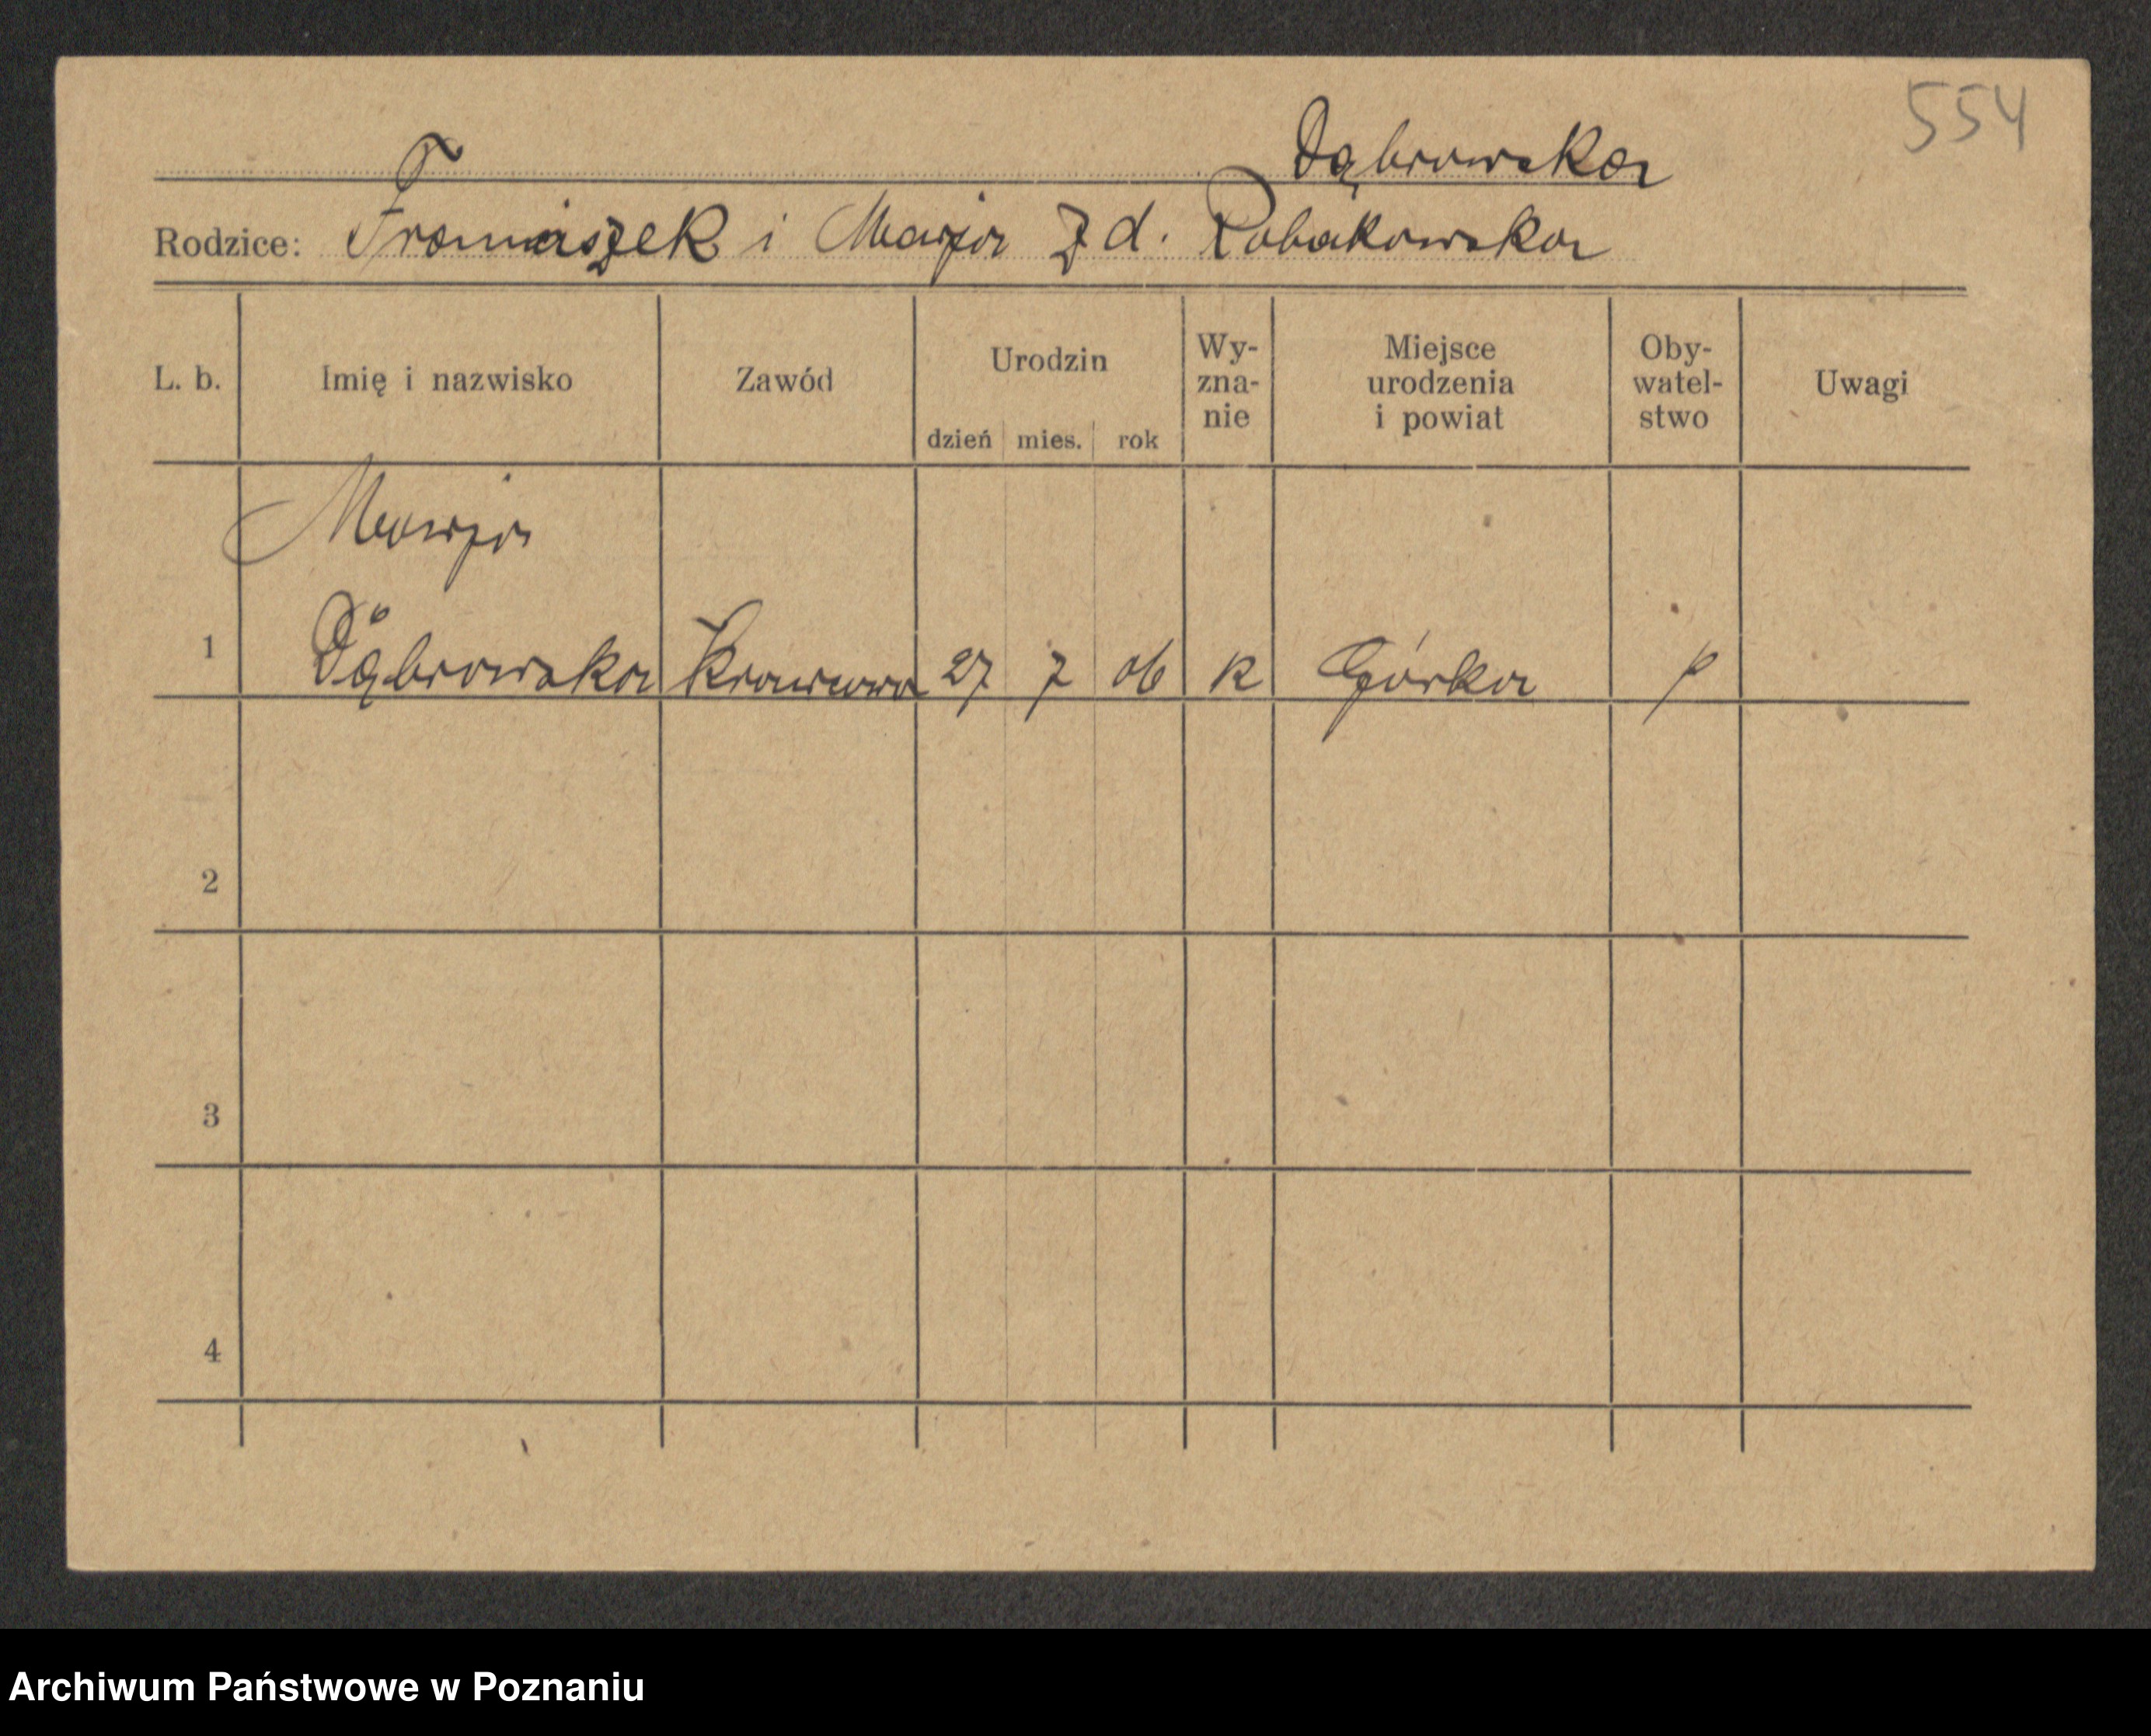 554
Dąbrowska
Rodzice: Franciszek i Marja z d. Robakowska
L. b. Imię i nazwisko Zawód Urodzin dzień mies. rok Wy-zna-nie Miejsce urodzenia i powiat Oby-watel-stwo Uwagi
Marja
1 Dąbrowska Krawcowa 27 7 06 k Górka p
2
3
4
Archiwum Państwowe w Poznaniu